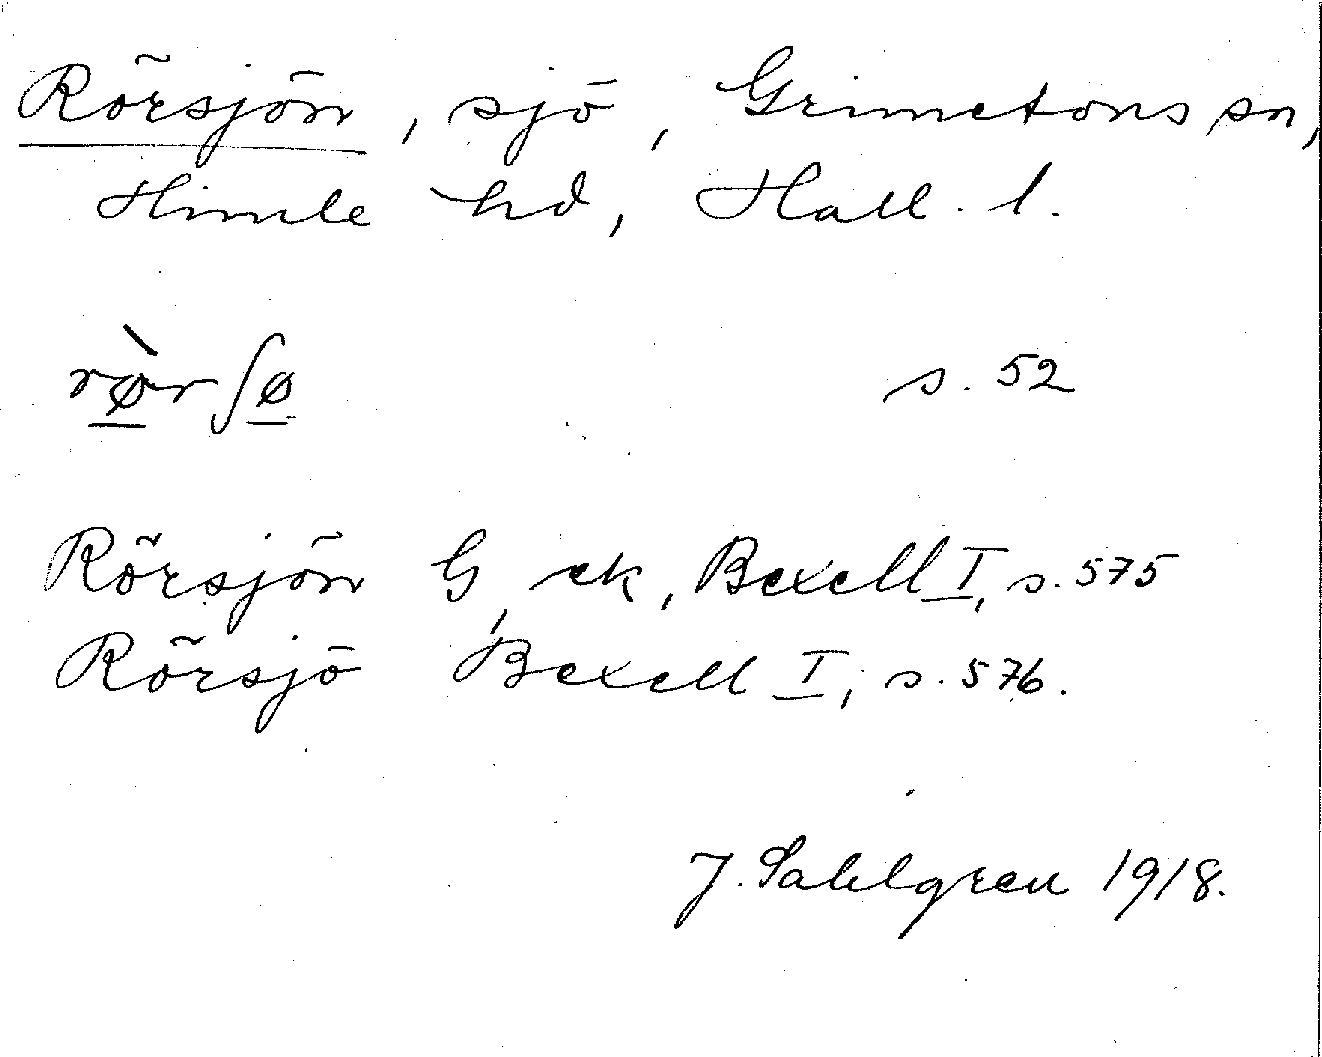 Rörsjön, sjö, Grimetons sn,
Himle hd, Hall. l.
rø̲̀rʃø̲ s. 52
Rörsjön G, ek, Bexell I, s. 575
Rörsjö Bexell I, s. 576.
J. Sahlgren 1918.